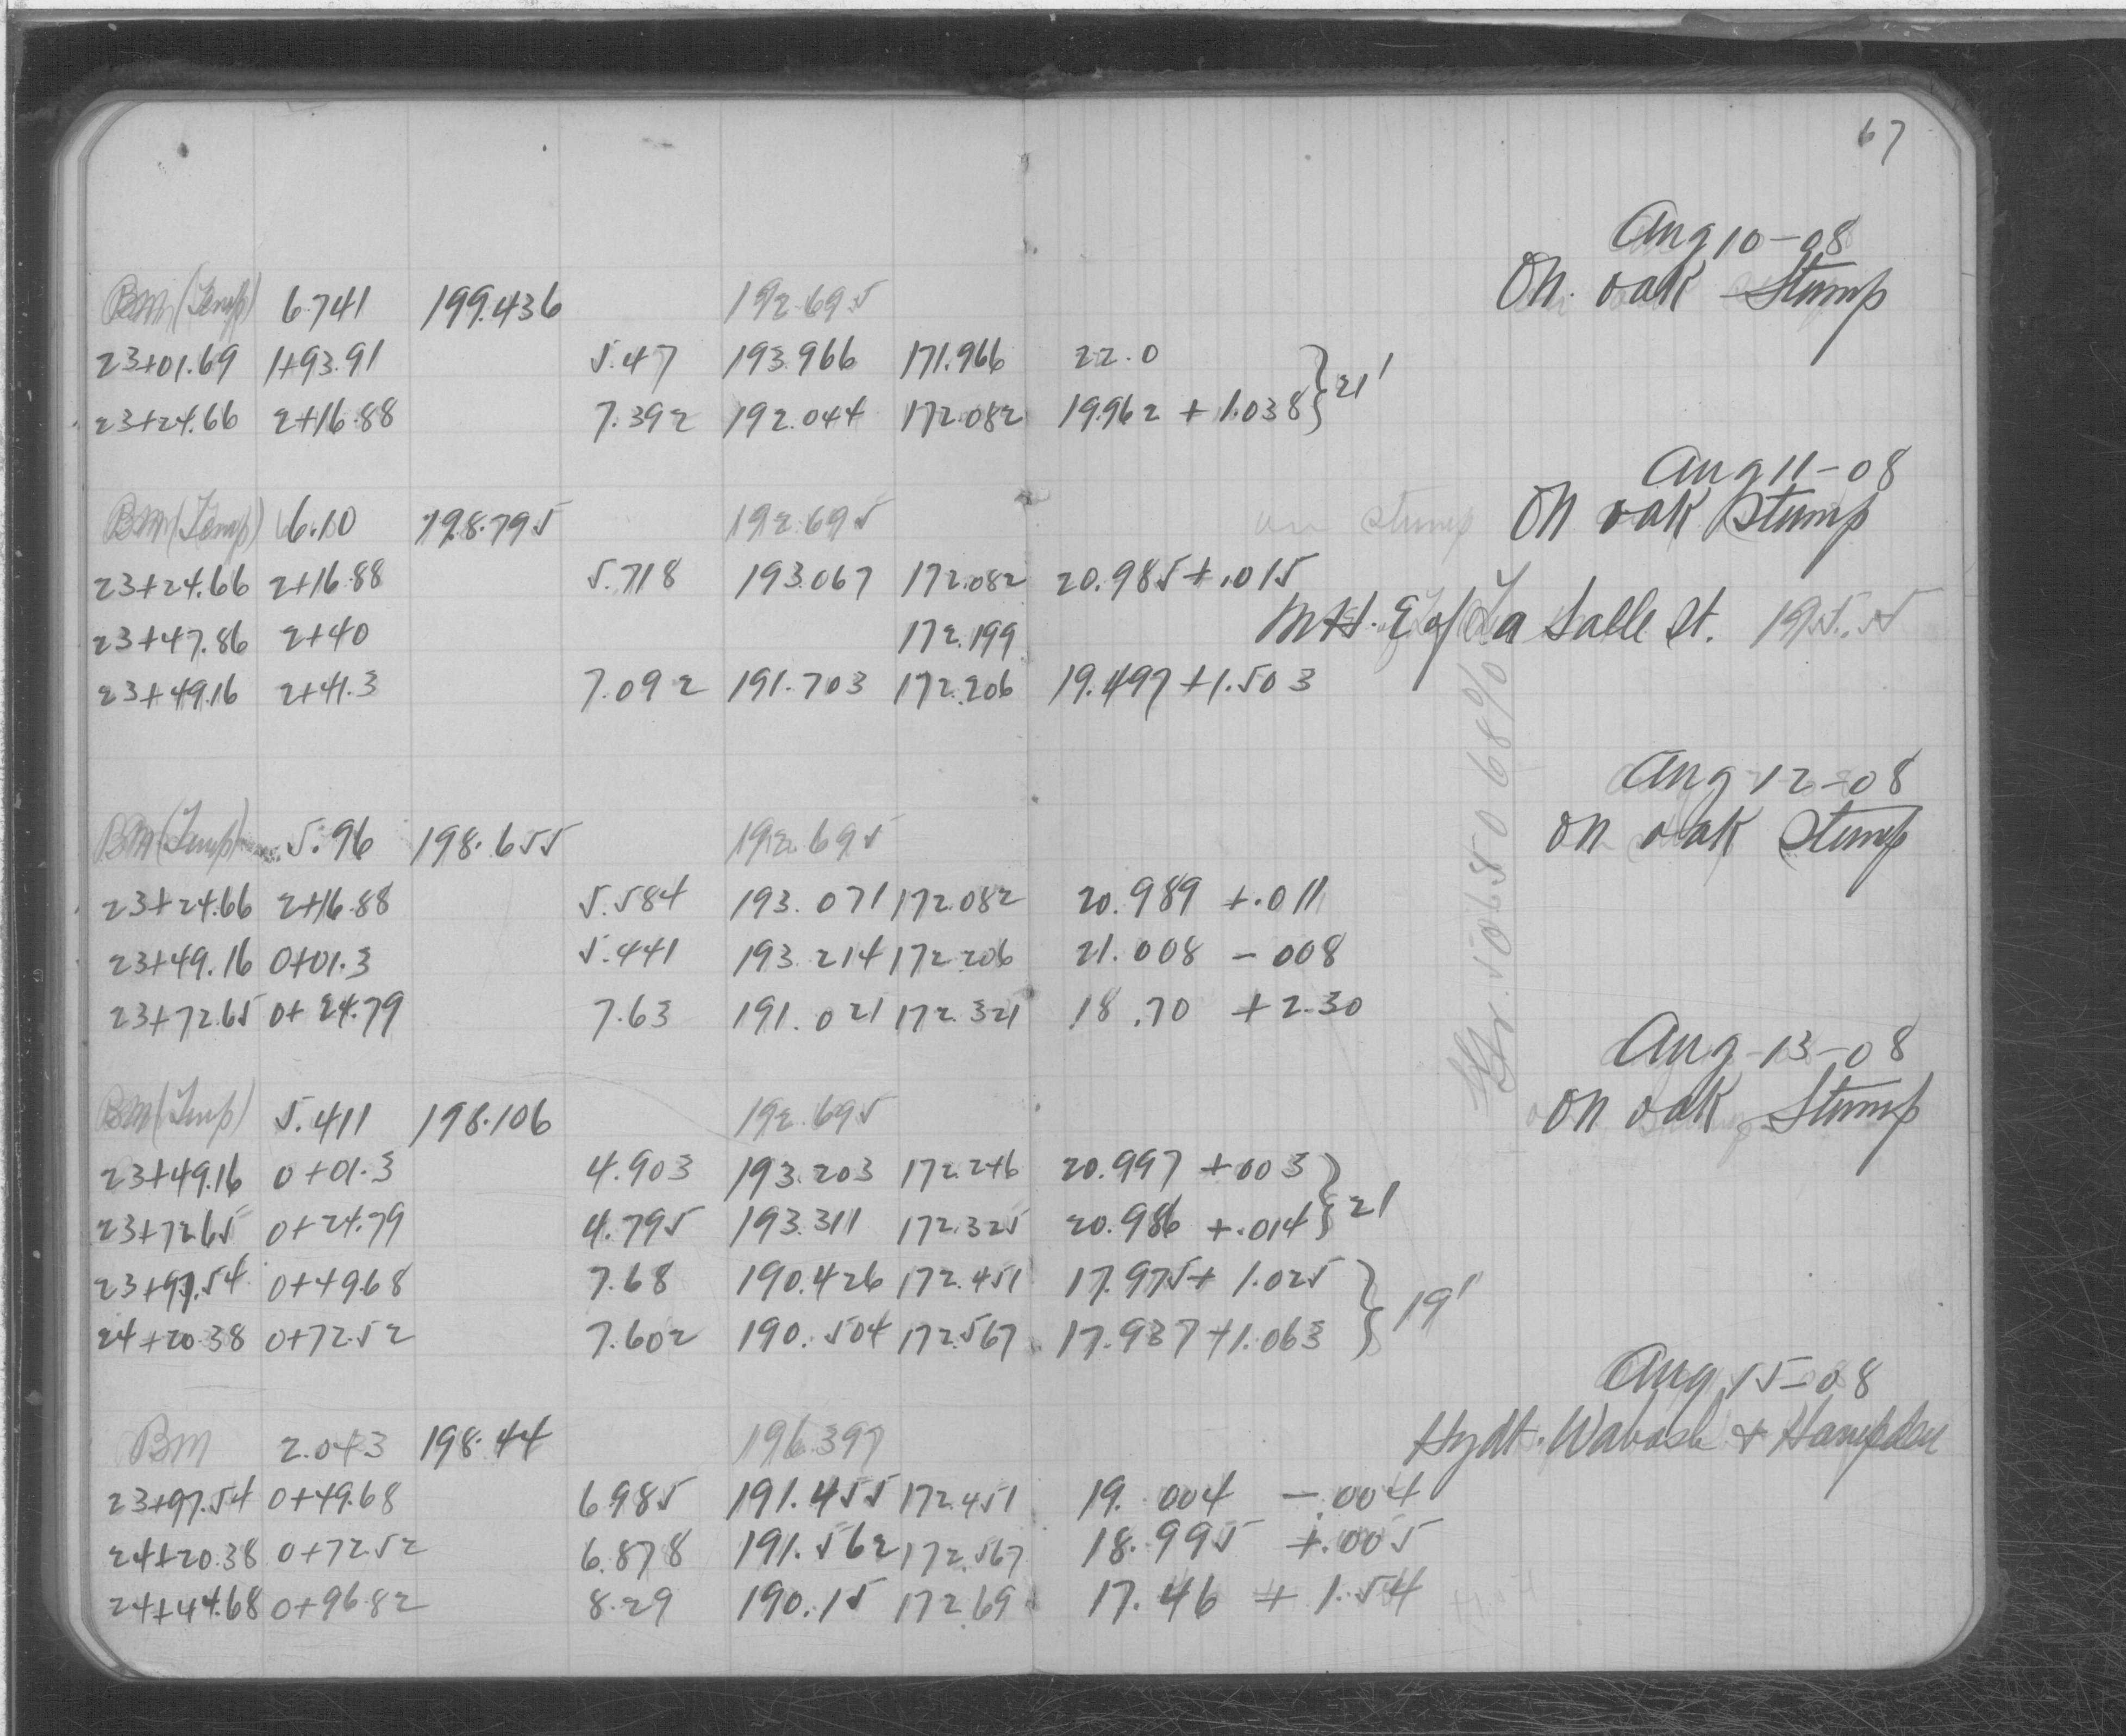 67
Aug 10-08
BM (Temp) 6.741 199.436 192.695 On oak Stump
23+01.69 1+93.91 5.47 193.966 171.966 22.0
23+24.66 2+16.88 7.392 192.044 172.082 19.962 + 1.038 } 21'
Aug 11-08
BM (Temp) 6.10 198.795 192.695 on stump On oak Stump
23+24.66 2+16.88 5.718 193.067 172.082 20.985 + .015
23+47.86 2+40 172.199 MH. E of La Salle St. 195.55
23+49.16 2+41.3 7.092 191.703 172.206 19.497 + 1.503
Aug 12-08
BM (Temp) 5.96 198.655 192.695 on oak Stump
23+24.66 2+16.88 5.584 193.071 172.082 20.989 +.011
23+49.16 0+01.3 5.441 193.214 172.206 21.008 - 008
23+72.65 0+24.79 7.63 191.021 172.321 18.70 + 2.30
Aug-13-08
BM (Temp) 5.411 198.106 192.695 on oak Stump
23+49.16 0+01.3 4.903 193.203 172.246 20.997 +003
23+72.65 0+24.79 4.795 193.311 172.325 20.986 +.014 } 21
23+97.54 0+49.68 7.68 190.426 172.451 17.975 + 1.025
24+20.38 0+72.52 7.602 190.504 172.567 17.937 + 1.063 } 19'
Aug 15-08
BM 2.043 198.44 196.397 Hydt. Wabash + Hampden
23+97.54 0+49.68 6.985 191.455 172.451 19.004 - .004
24+20.38 0+72.52 6.878 191.562 172.567 18.995 +.005
24+44.68 0+96.82 8.29 190.15 172.69 17.46 + 1.54